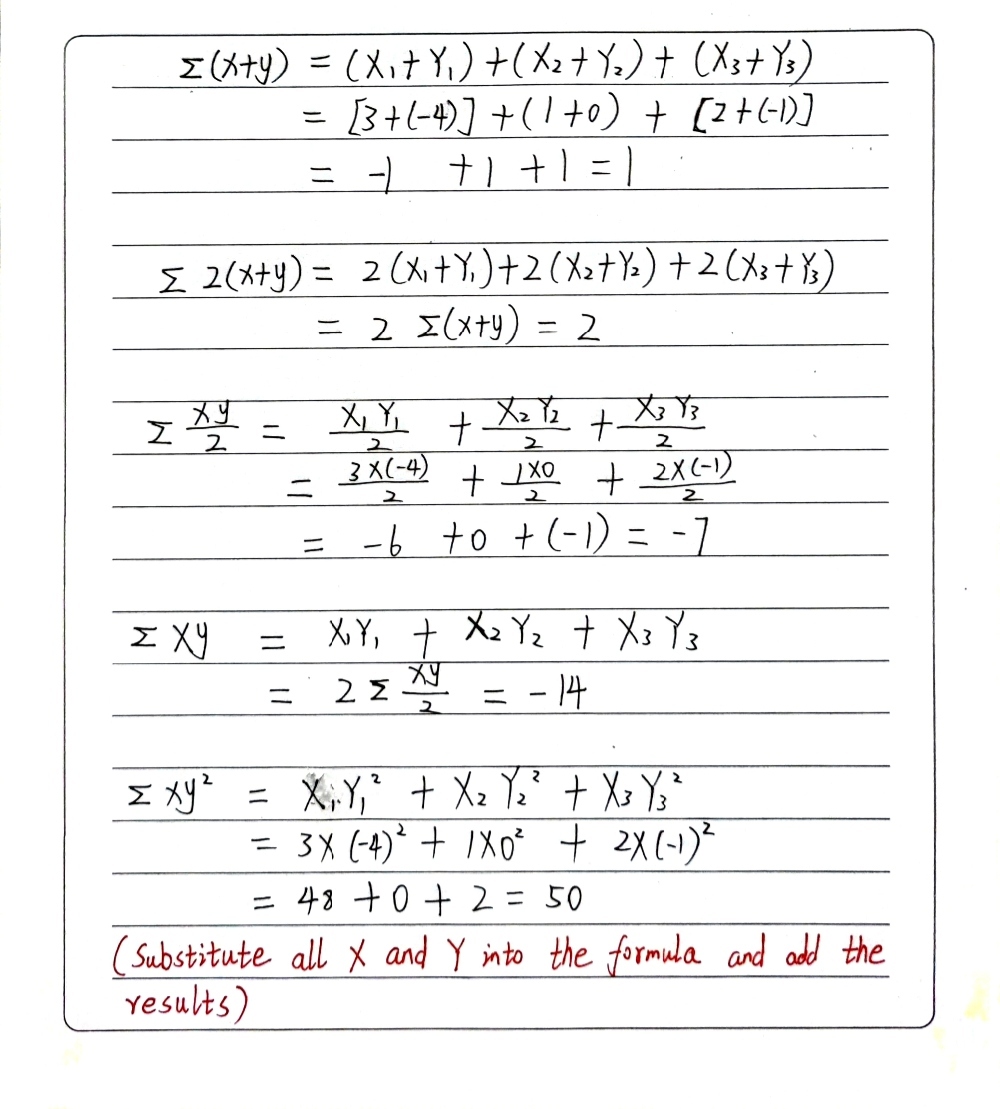 Σ(x+y) = (X₁+Y₁)+(X₂+Y₂)+(X₃+Y₃)
= [3+(-4)]+(1+0)+[2+(-1)]
= -1 +1 +1 = 1
Σ 2(x+y) = 2(X₁+Y₁)+2(X₂+Y₂)+2(X₃+Y₃)
= 2 Σ(x+y) = 2
Σ xy/2 = X₁Y₁/2 + X₂Y₂/2 + X₃Y₃/2
= 3×(-4)/2 + 1×0/2 + 2×(-1)/2
= -6 +0 +(-1) = -7
Σ xy = X₁Y₁ + X₂Y₂ + X₃Y₃
= 2 Σ xy/2 = -14
Σ xy² = X₁Y₁² + X₂Y₂² + X₃Y₃²
= 3×(-4)² + 1×0² + 2×(-1)²
= 48 +0 + 2 = 50
(Substitute all X and Y into the formula and add the
results)